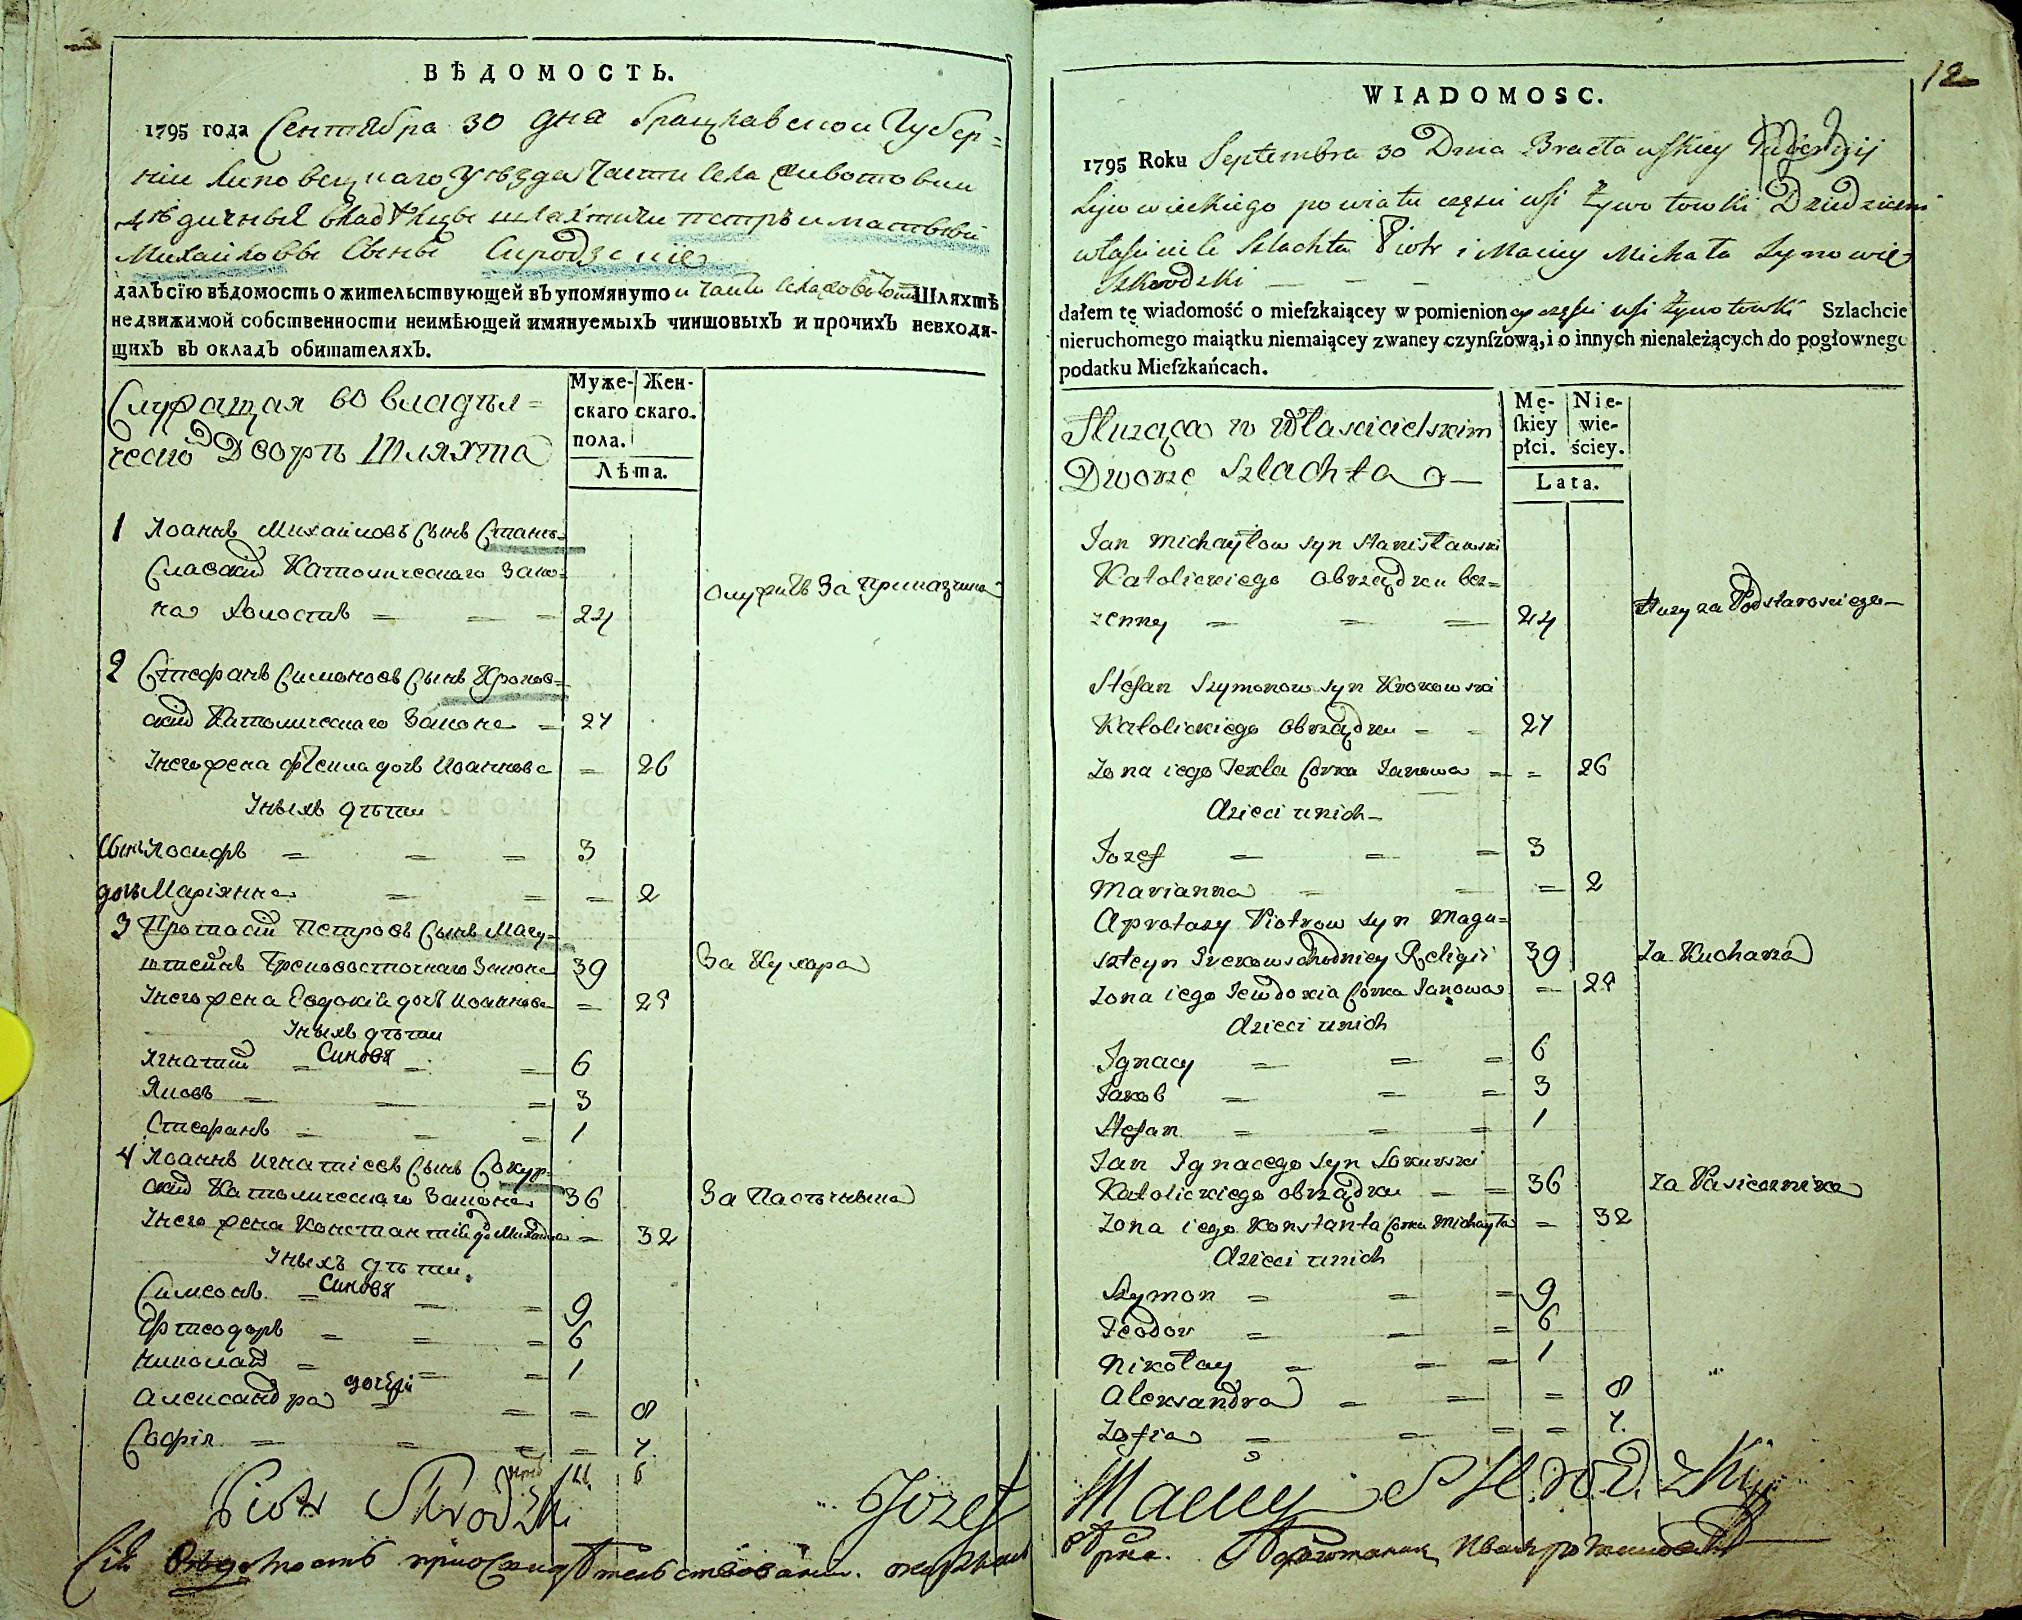 ВѢДОМОСТЬ.
1795 года Сентября 30 дня Брацлавской Губер=
нии Липовецкаго уезда Части села Животовки
дѣдичныя владѣлцы шляхтичи петръ и матвѣй
Михайловы Сыны Скродзскіе
далъ сїю вѣдомость о жительствующей въ упомянутои части села Шляхтѣ
недвижимой собственности неимѣющей имянуемыхъ чиншовыхъ и прочихъ невходя-
щихъ въ окладъ обитателяхъ.
Служащая во владѣл=
ческо Дворѣ Шляхта
Муже- Жен-
скаго скаго.
пола.
Лѣта.
1 Иоаннъ Михаиловъ Сынъ Стани=
Славскій Католическаго Зако=
на Холостъ = = = 24 Служитъ За Приказчика
2 Стефанъ Симоновъ Сынъ Кроков=
скій Католическаго Закона = 27
Унего жена Фекла дочь Иоаннова = 26
Унихъ дѣти
Сынъ Иосифъ = = = 3
дочь Маріянна = = = 2
3 Протасій Петровъ Сынъ Магу=
штейнъ Грековосточнаго Закона 39 За Кухара
Унего жена Евдокія дочь Иоаннова = 28
Унихъ дѣти
Игнатий = Синовя = = 6
Яковъ = = = 3
Стефанъ = = = 1
4 Иоаннъ Игнатіевъ Сынъ Сокур=
скій Католическаго Закона 36 За Пасѣчника
Унего жена Константія до Михайла = 32
Унихъ дѣти.
Симеонъ = Синовя = = 9
Фтеодоръ = = = 6
Николай = = = 1
Александра дочери = = = 8
Софія = = = = 7.
Piotr Skrodzki
12
WIADOMOSC.
1795 Roku Septembra 30 Dnia Bracławskiey Gubernij
Lipowieckiego powiatu części wsi Żywotowki Dziedziczni
własciciele Szlachta Piotr i Maciey Michała Synowie
Skrodzki — — —
dałem tę wiadomość o mieſzkaiącey w pomienioney części wsi Żywotowki Szlachcie
nieruchomego maiątku niemaiącey zwaney czynſzową, i o innych nienależących do pogłownego
podatku Mieſzkańcach.
Służąca w Włascicielskim
Dworze Szlachta —
Mę- Nie-
ſkiey wie-
płci. ściey.
Lata.
Jan Michayłow syn Stanisławski
Katolickiego obrządku bez=
zenny = = = 24 służy za Podstarosciego —
Stefan Szymonow syn Krokowski
Katolickiego obrządku = = 27
Zona iego Tekla Corka Janowa = = 26
dzieci unich —
Jozef = = = 3
Marianna = = = 2
Aprotasy Piotrow syn Magu=
szteyn Grekowschodniey Religii 39 za Kucharza
Zona iego Jewdoxia Corka Janowa = 28
dzieci unich
Ignacy = = = 6
Jakob = = = 3
Stefan = = = 1
Jan Ignacego syn Sokurski
Katolickiego obrządku = = 36 za Pasiecznika
Zona iego Konstanta Corka Michayła = 32
dzieci unich
Szymon = = = 9
Teodor = = = 6
Nikołay = = = 1
Alexandra = = = 8
Zofia = = = = 7.
Maciey Skrodzki